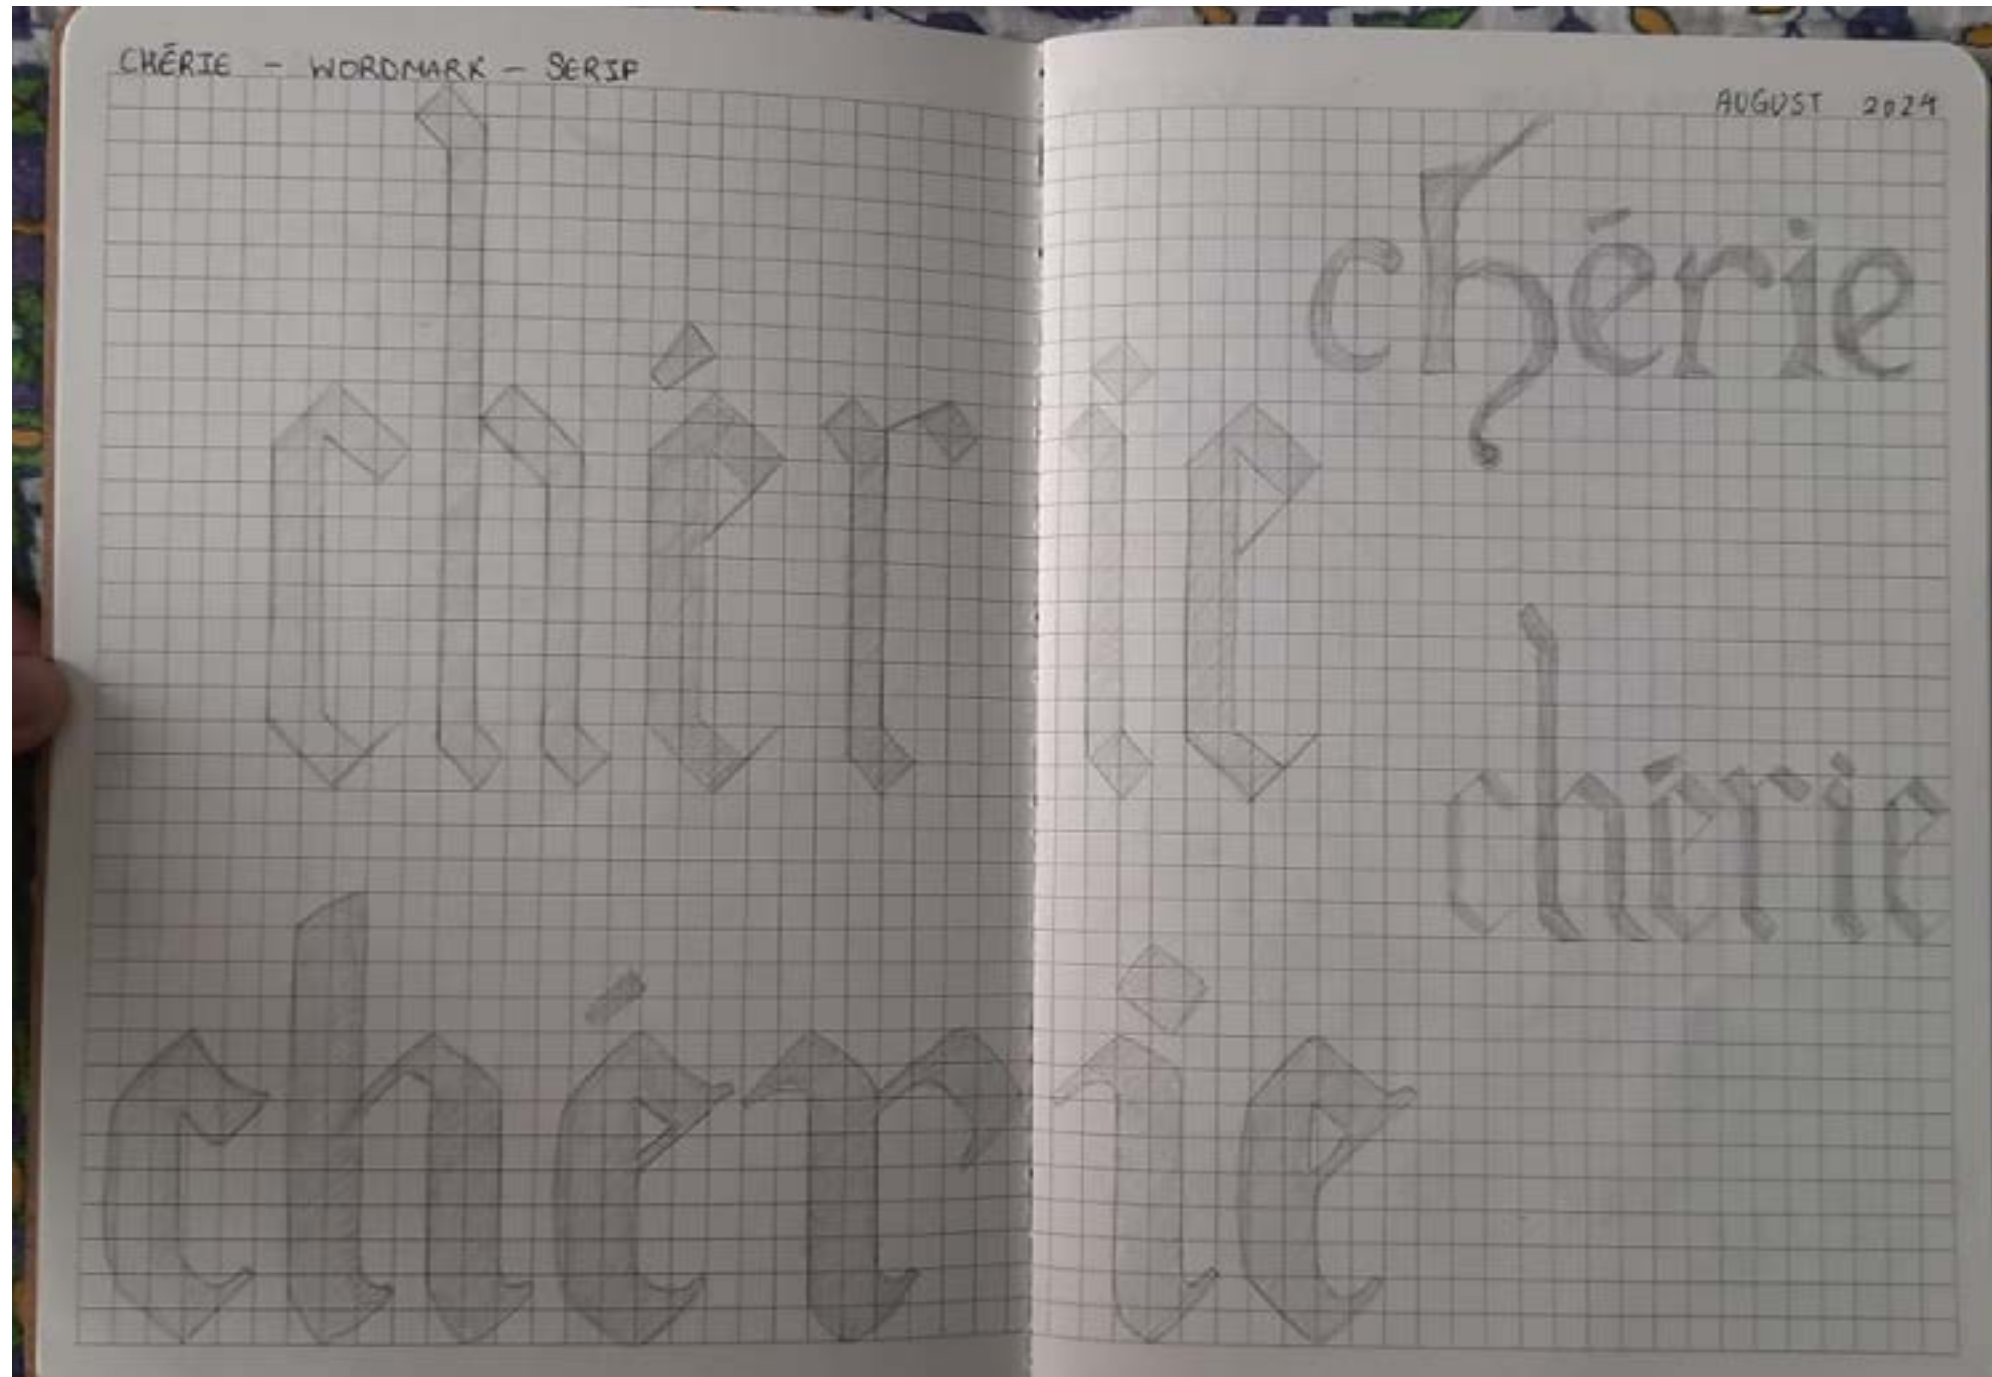 CHÉRIE - WORDMARK - SERIF
AUGUST 2024
chérie
chérie
chérie
chérie